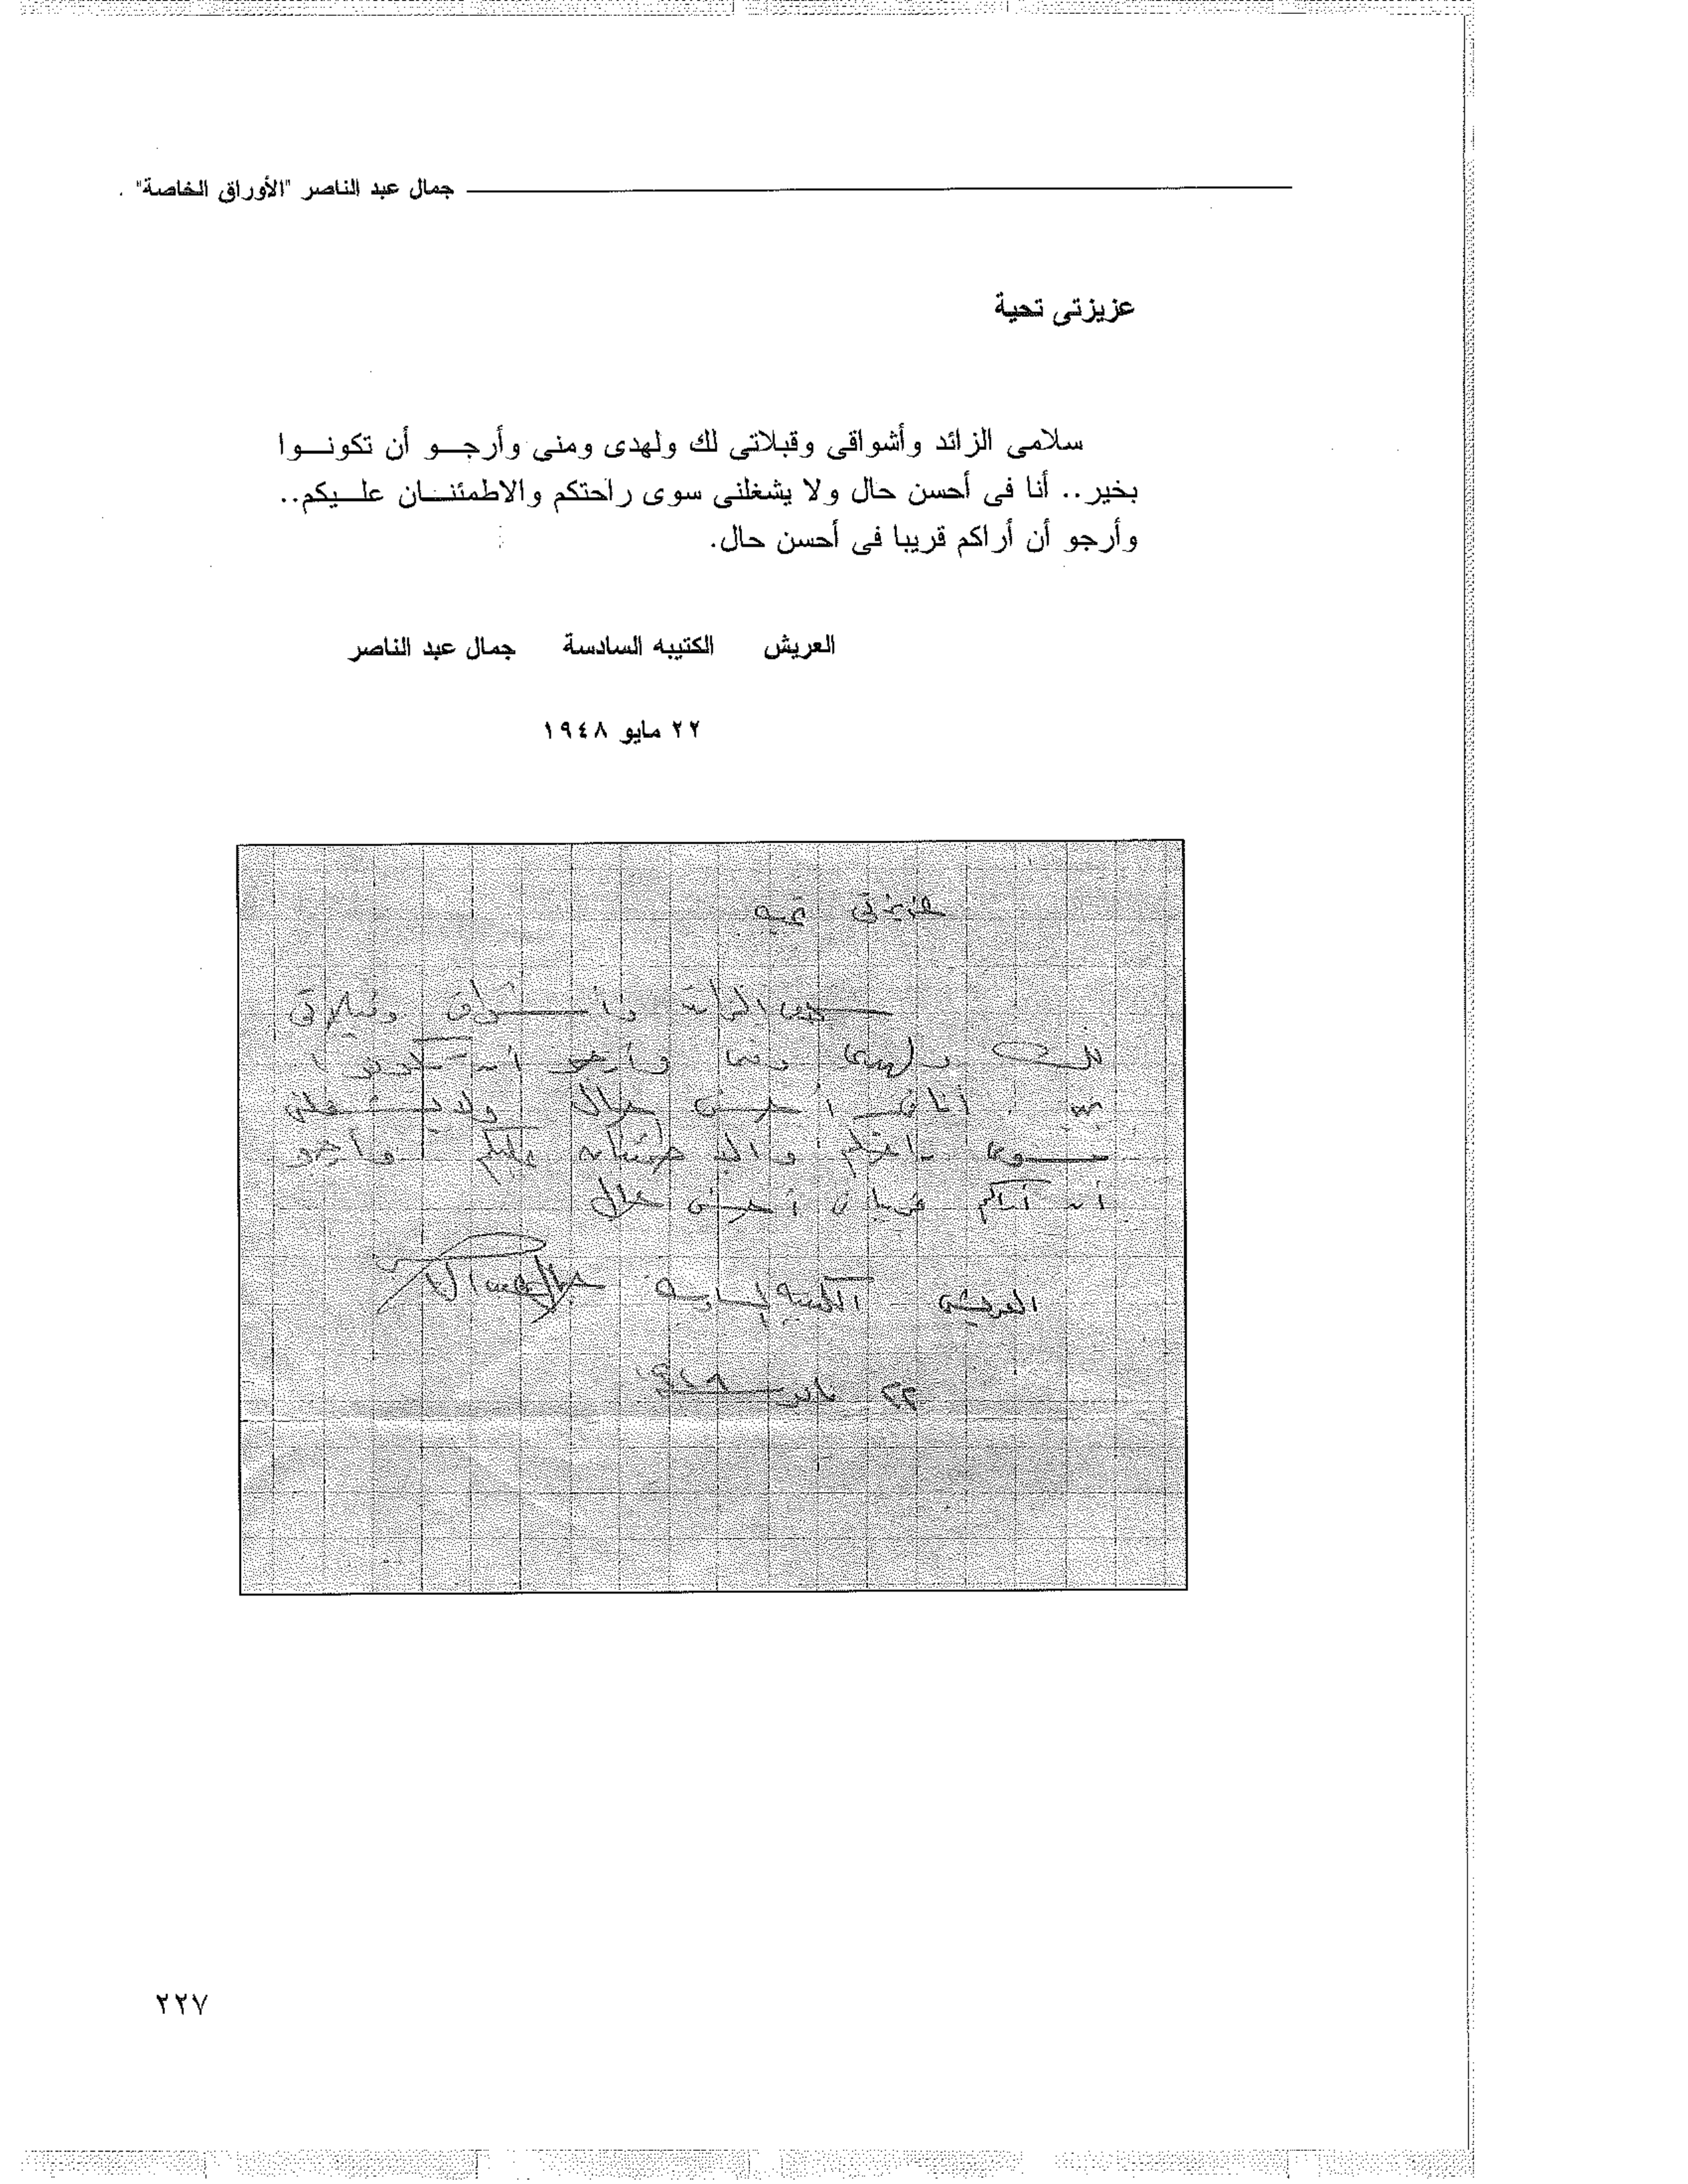 جمال عبد الناصر "الأوراق الخاصة"
عزيزتى تحية
سلامى الزائد وأشواقى وقبلاتى لك ولهدى ومنى وأرجو أن تكونوا
بخير.. أنا فى أحسن حال ولا يشغلنى سوى راحتكم والاطمئنان عليكم..
وأرجو أن أراكم قريبا فى أحسن حال.
العريش الكتيبه السادسة جمال عبد الناصر
٢٢ مايو ١٩٤٨
عزيزتى تحيه
سلامى الزائد وأشواقى وقبلاتى
لك ولهدى ومنا وأرجو أن تكونوا
بخير . أنا فى أحسن حال ولا يشغلنى
سوى راحتكم والاطمئنان عليكم وأرجو
أن أراكم قريبا فى أحسن حال
العريش الكتيبه السادسه جمال عبد الناصر
٢٢ مايو ١٩٤٨
٢٢٧